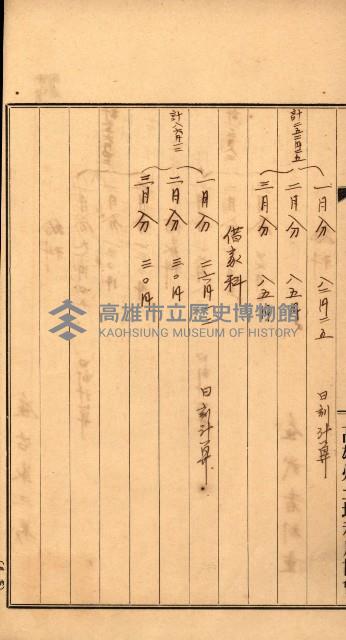 一月分 八二円二五 日割計算
二月分 八五円
三月分 八五円
計二五二円二五
借家料
一月分 二六円一二 日割計算.
二月分 三〇円
三月分 三〇円
計八六円一二
高雄市立歷史博物館
KAOHSIUNG MUSEUM OF HISTORY